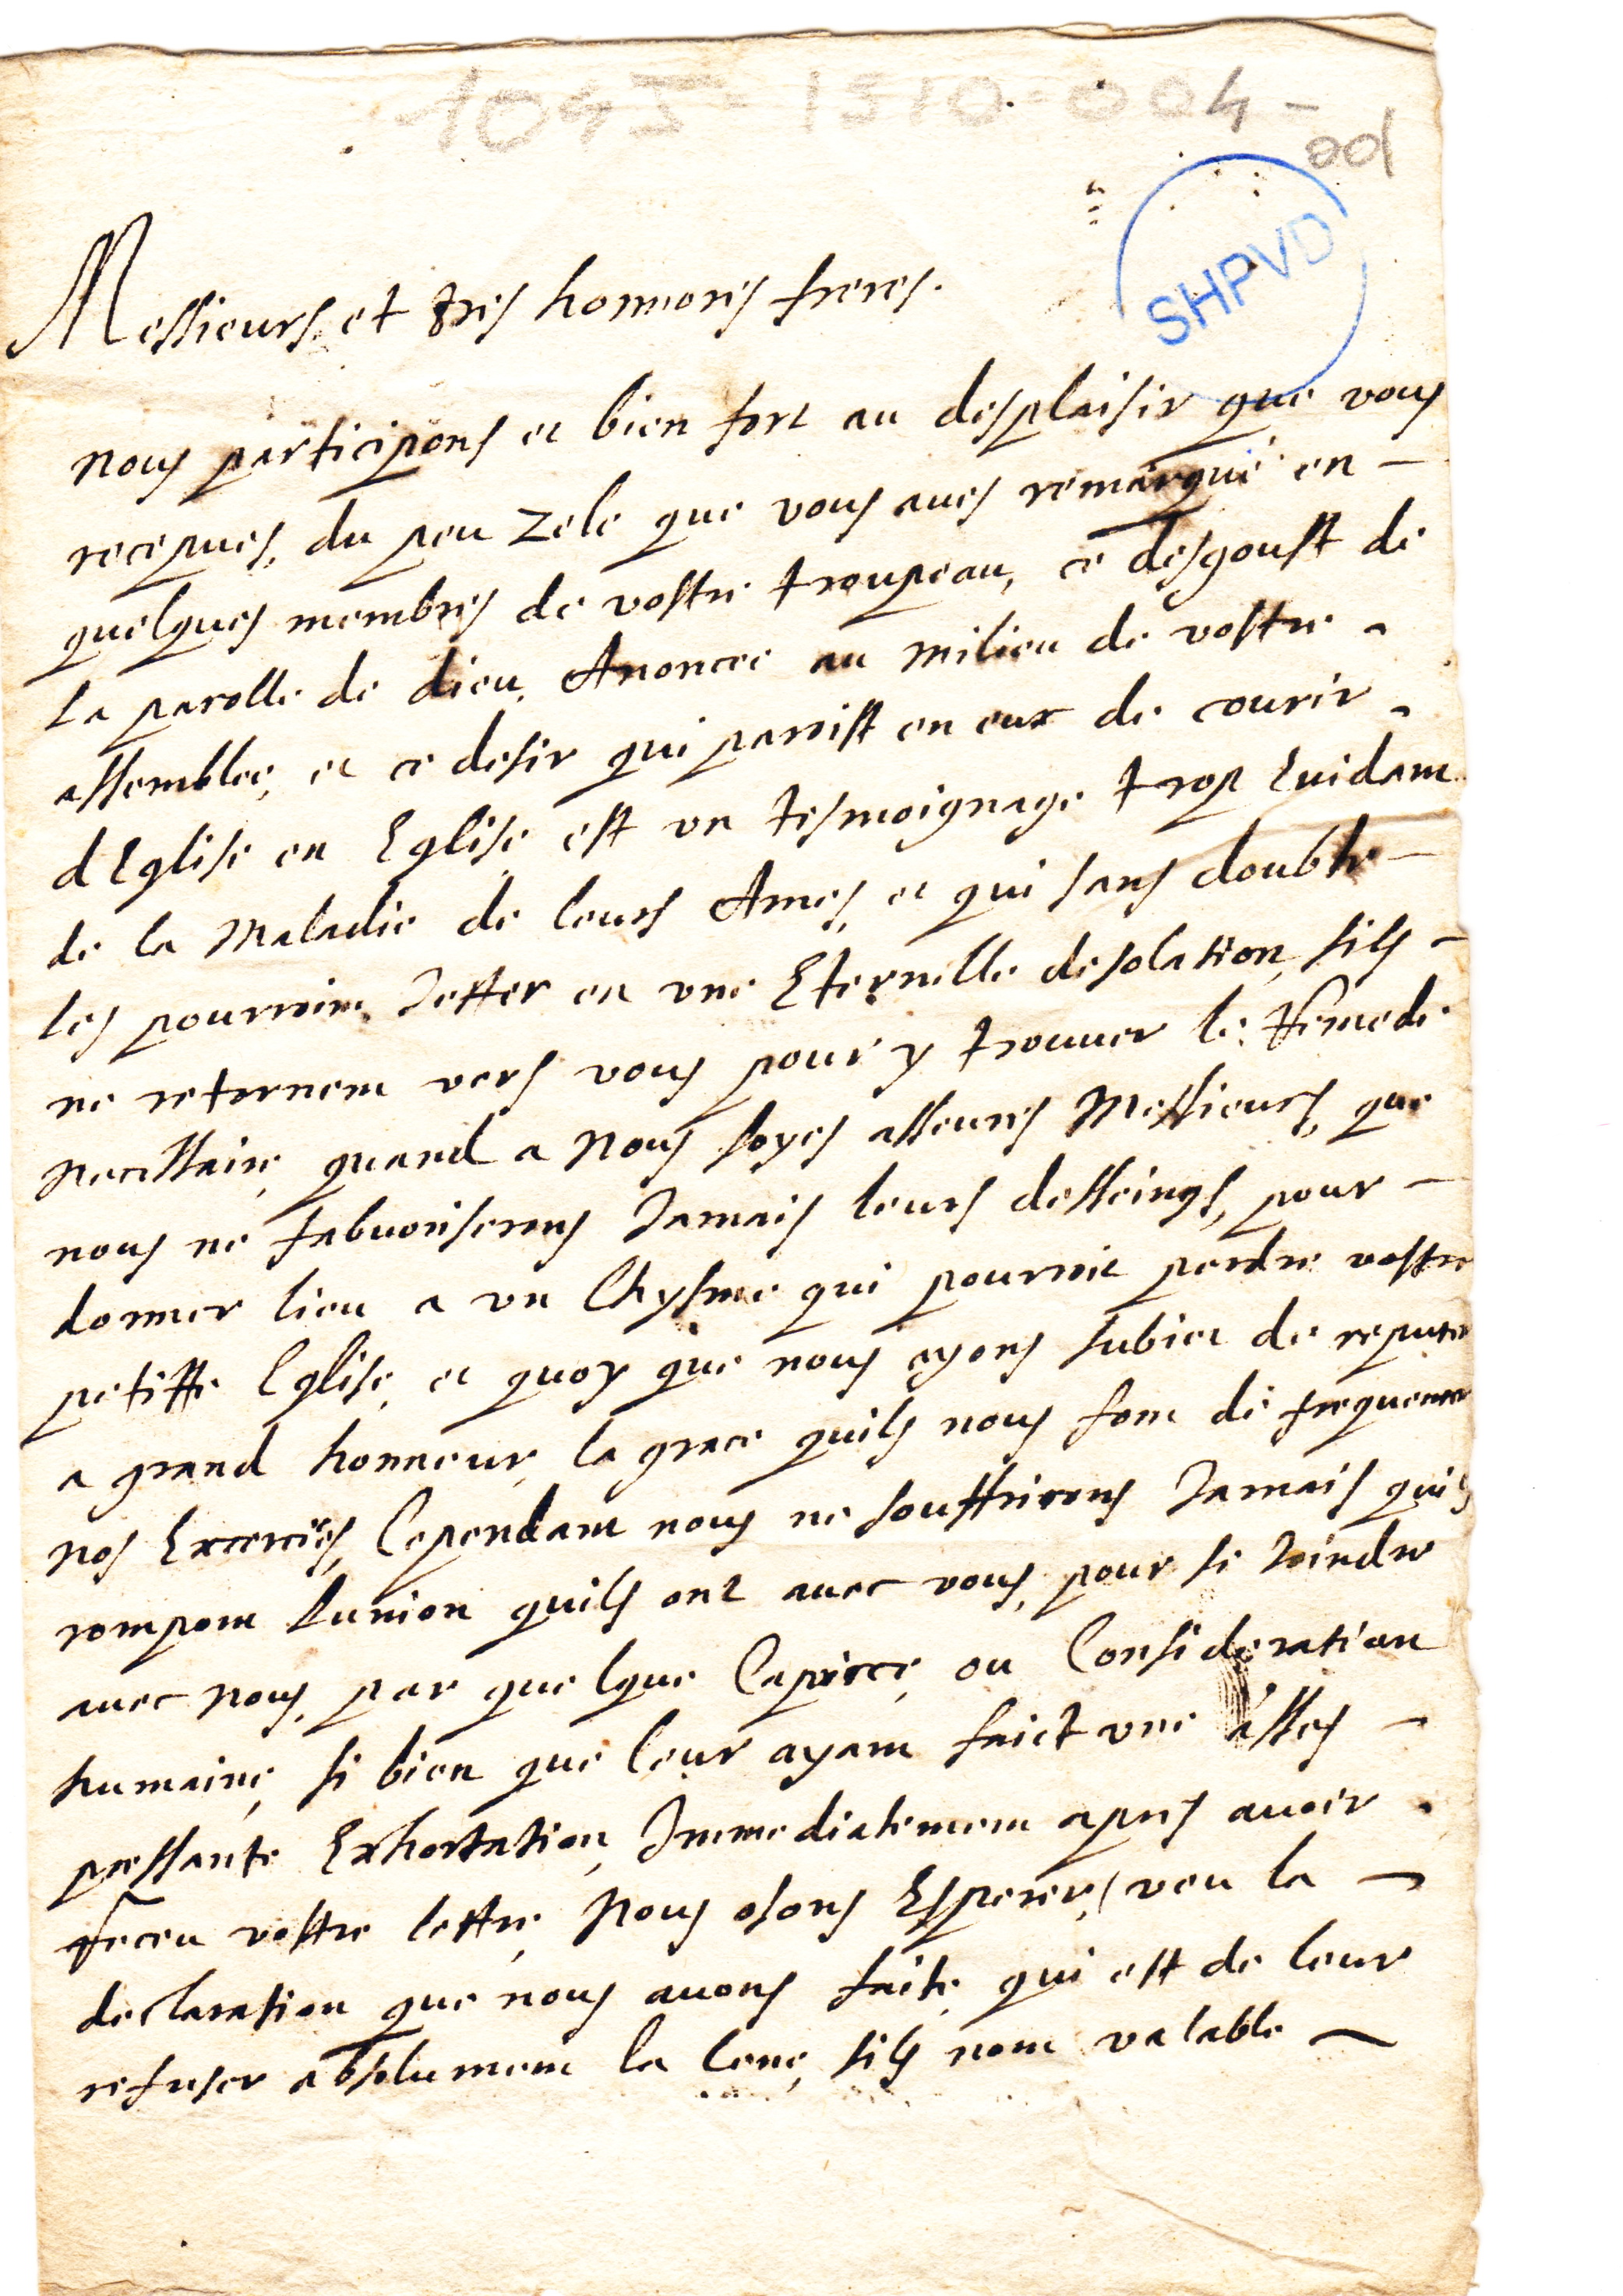 1045-1510-004-
ad
SHPVD
Messieurs et tres honnorés freres.
nous participons et bien fort au desplaisir que vous
recepues, du peu zele que vous aues remarqué en –
quelques membres de vostre troupeau, ce desgoust de
la parolle de dieu, Anoncee au milieu de vostre –
assemblee, et ce desir qui paroist en eux de courir –
dEglise en Eglise, est vn tesmoignage trop Euidant
de la Maladie de leurs Ames, et qui sans doubte –
les pourroint Jetter en vne Eternelle desolation, sils –
ne retornent vers vous pour y trouuer le Remede
necessaire, quand a nous soyes asseures Messieurs, que
nous ne fabuoriserons Jamais leurs desseings, pour –
donner lieu a vn Chysme qui pourroit perdre vostre
petitte Eglise, et quoy que nous ayons subiet de reputer
a grand honneur, la grace quils nous font de frequenter
nos Exercices, Cependant nous ne souffrirons Jamais quils
rompent lunion quils ont auec vous, pour se Joindre
auec nous, par quelque Caprice, ou Consideration
humaine, si bien que leur ayant faict vne asses –
pressante Exhortation, Immediatement apres auoir
Receu vostre lettre, Nous osons Esperer, veu la –
declaration que nous auons faite, qui est de leur
refuser absolument la Cene, sils nont valable –